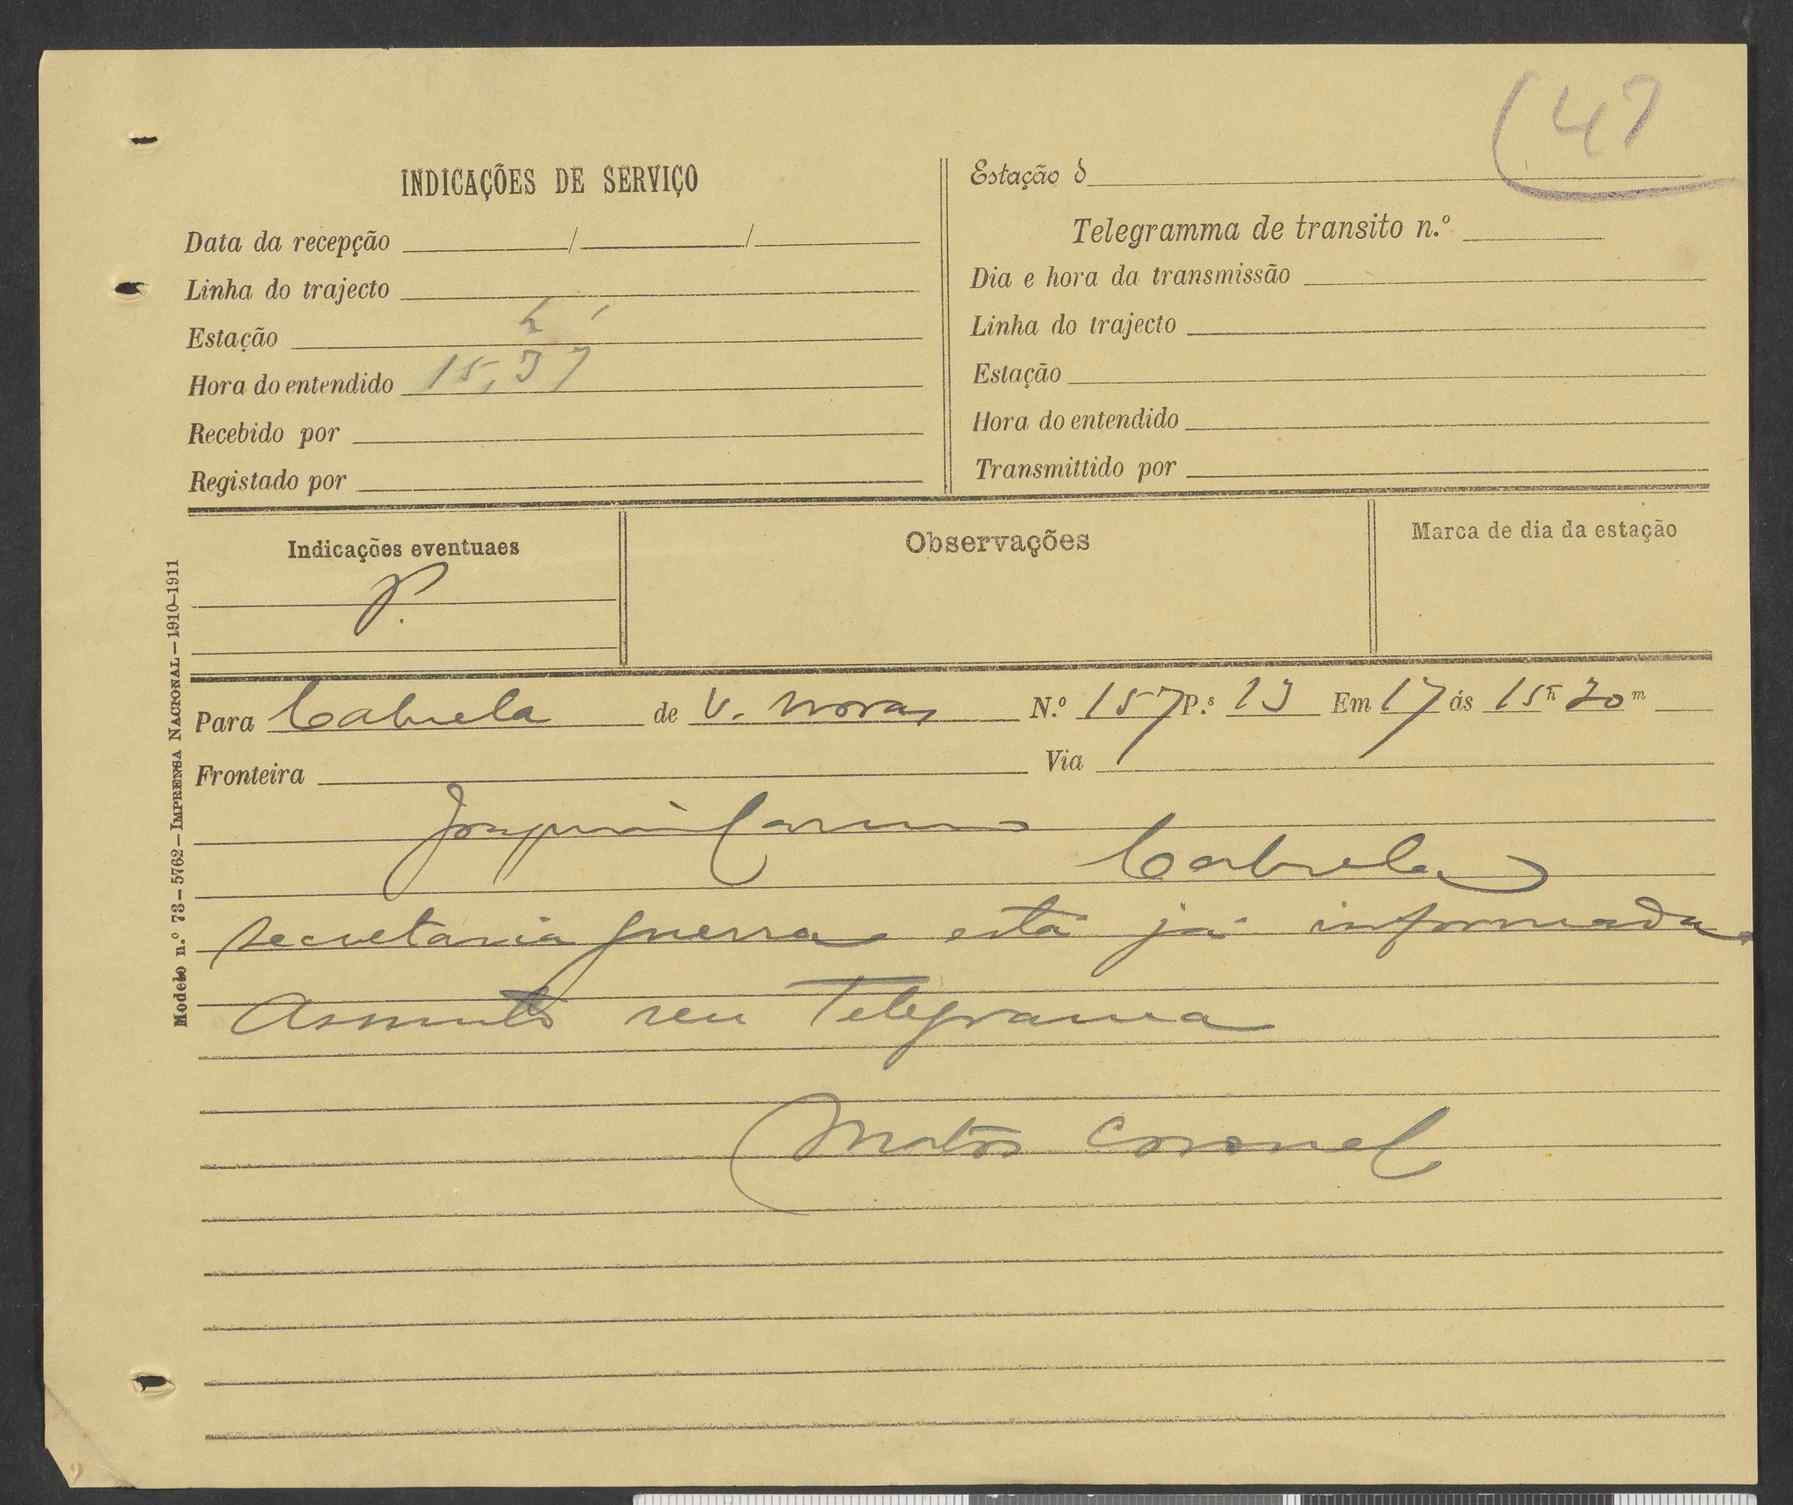 (47
INDICAÇÕES DE SERVIÇO
Data da recepção / /
Linha do trajecto
Estação
h ′
Hora do entendido 15,37
Recebido por
Registado por
Estação d
Telegramma de transito n.º
Dia e hora da transmissão
Linha do trajecto
Estação
Hora do entendido
Transmittido por
Indicações eventuaes
P.
Observações
Marca de dia da estação
Modelo n.º 73 — 5762 — IMPRENSA NACIONAL — 1910-1911
Para Cabrela de V. Novas N.º 157 P.s 13 Em 17 ás 15 h 30 m
Fronteira Via
Joaquim Carmo
Cabrela
secretaria guerra está já informada
Assunto seu Telegrama
Matos Coronel